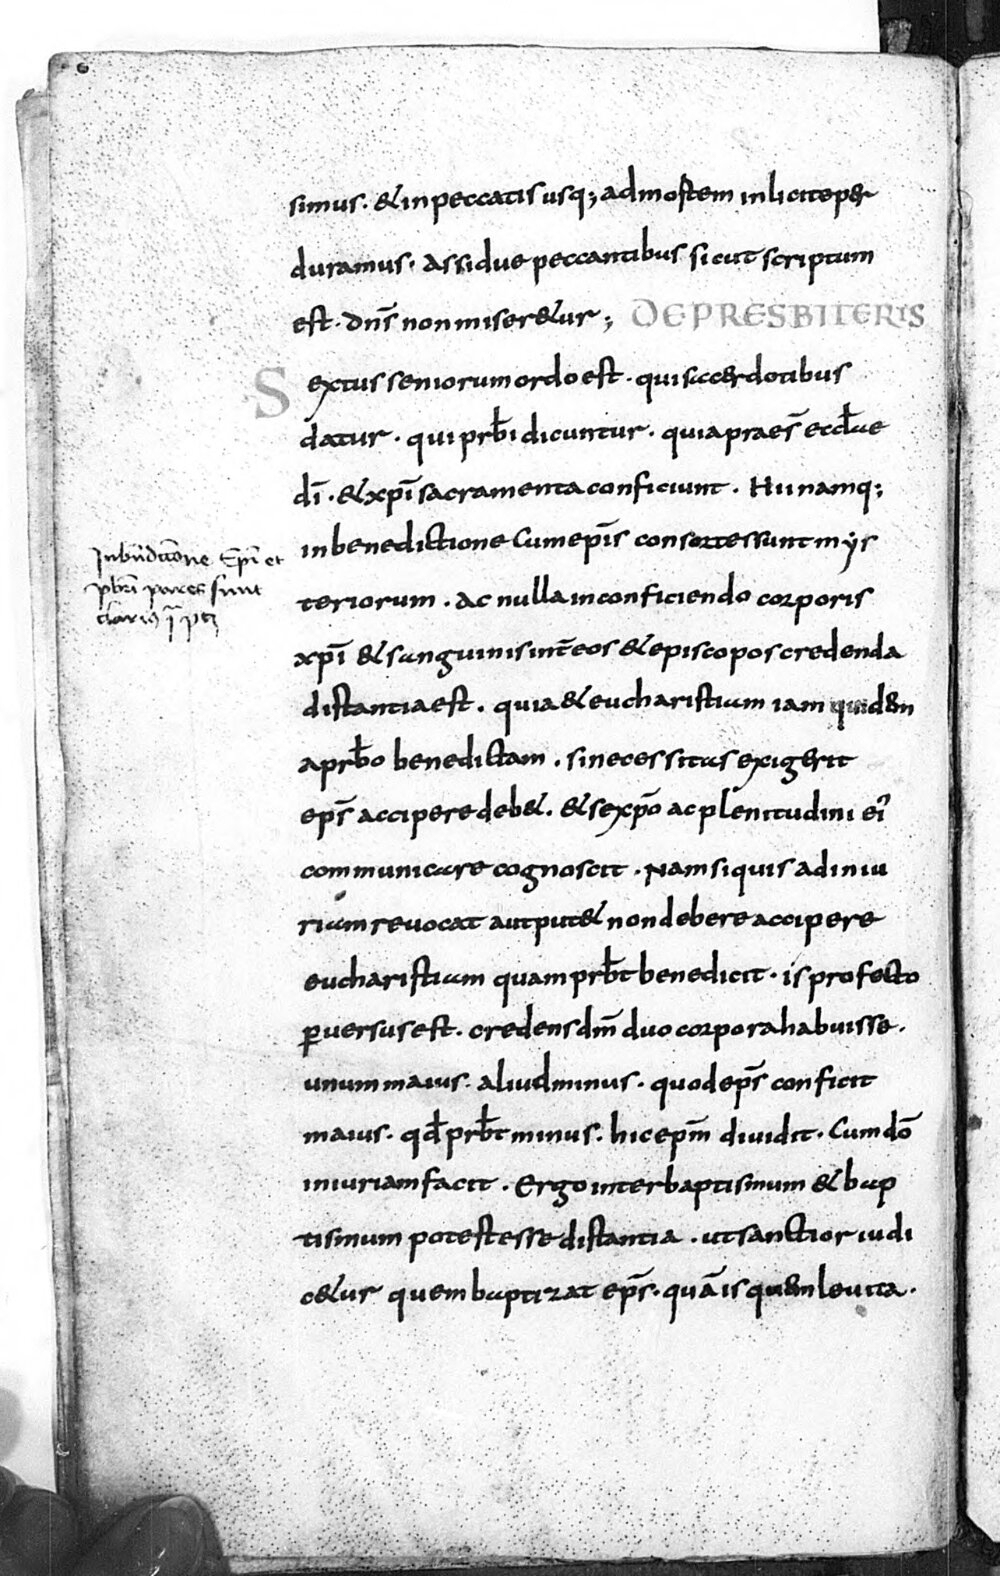 simus. & in peccatis usq; ad mortem inliciteper
duramus. assidue peccantibus sicut scriptum
est. dns̄ non miser&ur; DE PRESBITERIS
Sextus seniorum ordo est. qui sacerdotibus
datur. qui prb̄i dicuntur. quia praes̄ eccl̄ae
dī. & xp̄i sacramenta conficiunt. Hi namq;
in benedictione cum ep̄is consortes sunt mys
teriorum. ac nulla in conficiendo corporis
In bn̄dictōne Ep̄i et
pb̄ri pares sunt
xp̄i & sanguinis int̄ eos & episcopos credenda
distantia est. quia & eucharistiam iam quidem
a prb̄o benedictam. si necessitas exigerit
ep̄s accipere deb&. & se xp̄o ac plenitudini ei᾽
communicare cognoscit. Nam si quis ad iniu
riam reuocat aut put& non debere accipere
eucharistiam quam prb̄t benedicit. is profecto
ꝑuersus est. credens dm̄ duo corpora habuisse.
unum maius. aliud minus. quod ep̄s conficit
maius. qd̄ prb̄t minus. hic ep̄m diuidit. Cum dō
iniuriam facit. Ergo inter baptismum & bap
tismum potest esse distantia. ut sanctior iudi
c&ur quem baptizat ep̄s. quā is quem leuita.